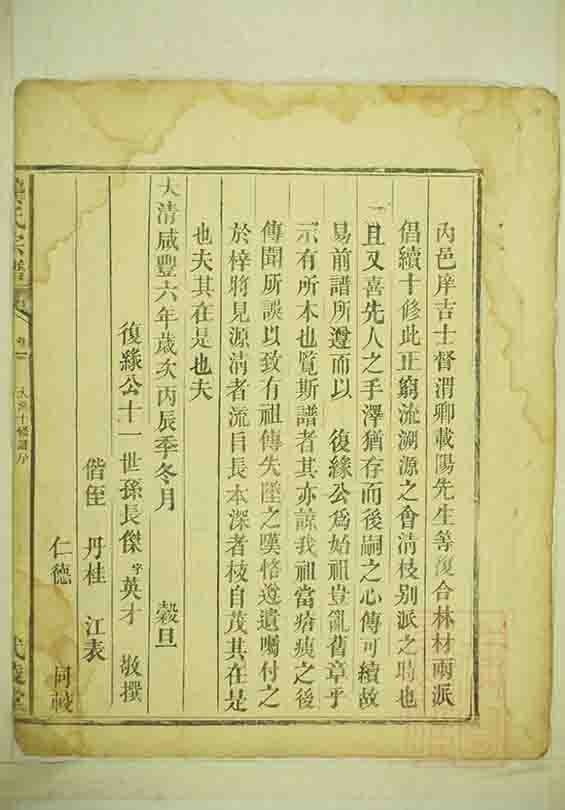 丙邑庠吉士督渭卿載陽先生等復合林材兩派
倡續十修此正窮流溯源之會清枝别派之時也
且又喜先人之手澤猶存而後嗣之心傳可續故
易前譜所遵而以 復緣公爲始祖豈亂舊章乎
示有所本也覧斯譜者其亦諒我祖當瘡痍之後
傳聞所誤以致有祖傳失墜之嘆恪遵遺囑付之
於梓將見源清者流自長本深者枝自茂其在是
也夫其在是也夫
大清咸豐六年歲次丙辰季冬月 穀旦
復緣公十一世孫長傑字英才 敬撰
偕侄 丹桂 江表
仁德 同
氏宗譜
大 十修譜序
武陵堂